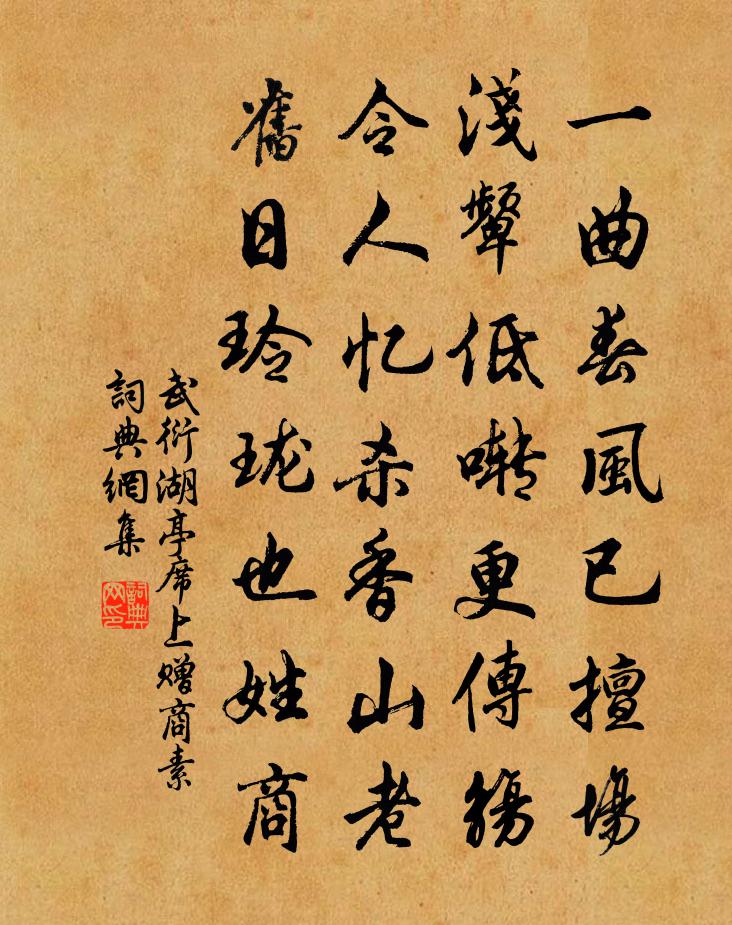 一曲春風已擅場
淺顰低囀更傳觴
令人忆杀香山老
舊日玲珑也姓商
武衍湖亭席上赠商素
詞典網集
詞典网印